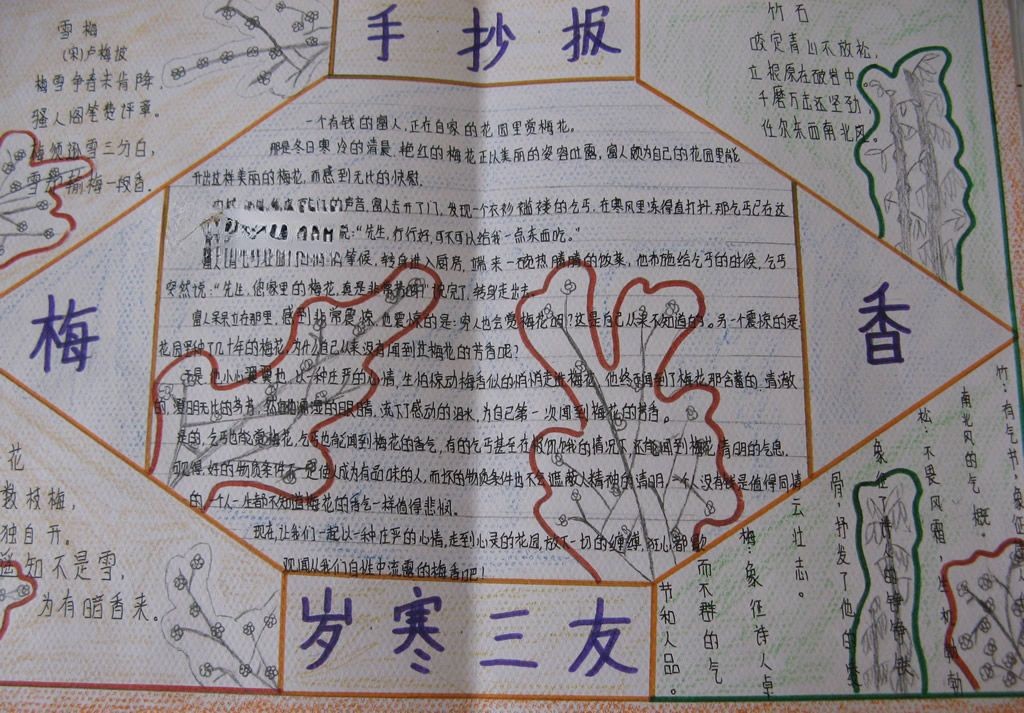 手抄报
雪梅
(宋)卢梅坡
梅雪争春未肯降,
骚人阁笔费评章。
梅须逊雪三分白,
雪却输梅一段香.
竹石
咬定青山不放松,
立根原在破岩中。
千磨万击还坚劲,
任尔东西南北风。
梅
香
一个有钱的富人,正在自家的花园里赏梅花。
那是冬日寒冷的清晨,艳红的梅花正以美丽的姿容吐露,富人颇为自己的花园里能
开出这样美丽的梅花,而感到无比的快慰.
的声音,富人去开了门,发现一个衣衫褴褛的乞丐,在寒风里冻得直打抖,那乞丐已在这
说:“先生,行行好,可不可以给我一点东西吃。”
富人 等候,转身进入厨房,端来一碗热腾腾的饭菜,他布施给乞丐的时候,乞丐
突然说:“先生,您家里的梅花,真是非常芳香呀!”说完了,转身走出去.
富人呆呆立在那里,感到非常震惊,他震惊的是:穷人也会赏梅花吗?这是自己从来不知道的。另一个震惊的是:
花园里种了几十年的梅花,为什么自己从来没有闻到过梅花的芳香呢?
于是,他小心翼翼地,以一种庄严的心情,生怕惊动梅香似的悄悄走近梅花,他终于闻到了梅花那含蓄的,清澈
的,澄明无比的芬芳,然后他濡湿的眼睛,流下感动的泪水,为自己第一次闻到梅花的芳香。
是的,乞丐也能赏梅花,乞丐也能闻到梅花的香气,有的乞丐甚至在极饥饿的情况下,还能闻到梅花清明的气息.
可见得,好的物质条件不一定使人成为有品味的人,而坏的物质条件也不会遮蔽人精神的清明,一个人没有钱是值得同情
的,一个人一生都不知道梅花的香气一样值得悲悯。
现在,让我们一起以一种庄严的心情,走到心灵的花园,放下一切的缠缚,狂心都歇
观闻从我们自性中流露的梅香吧!
岁寒三友
花
数枝梅,
独自开。
遥知不是雪,
为有暗香来。
竹:有气节,象征
南北风的气概。
松:不畏风霜,生机勃勃
象征了诗人的铮铮铁
骨,抒发了他的
云壮志。
梅:象征诗人卓
而不群的气
节和人品。